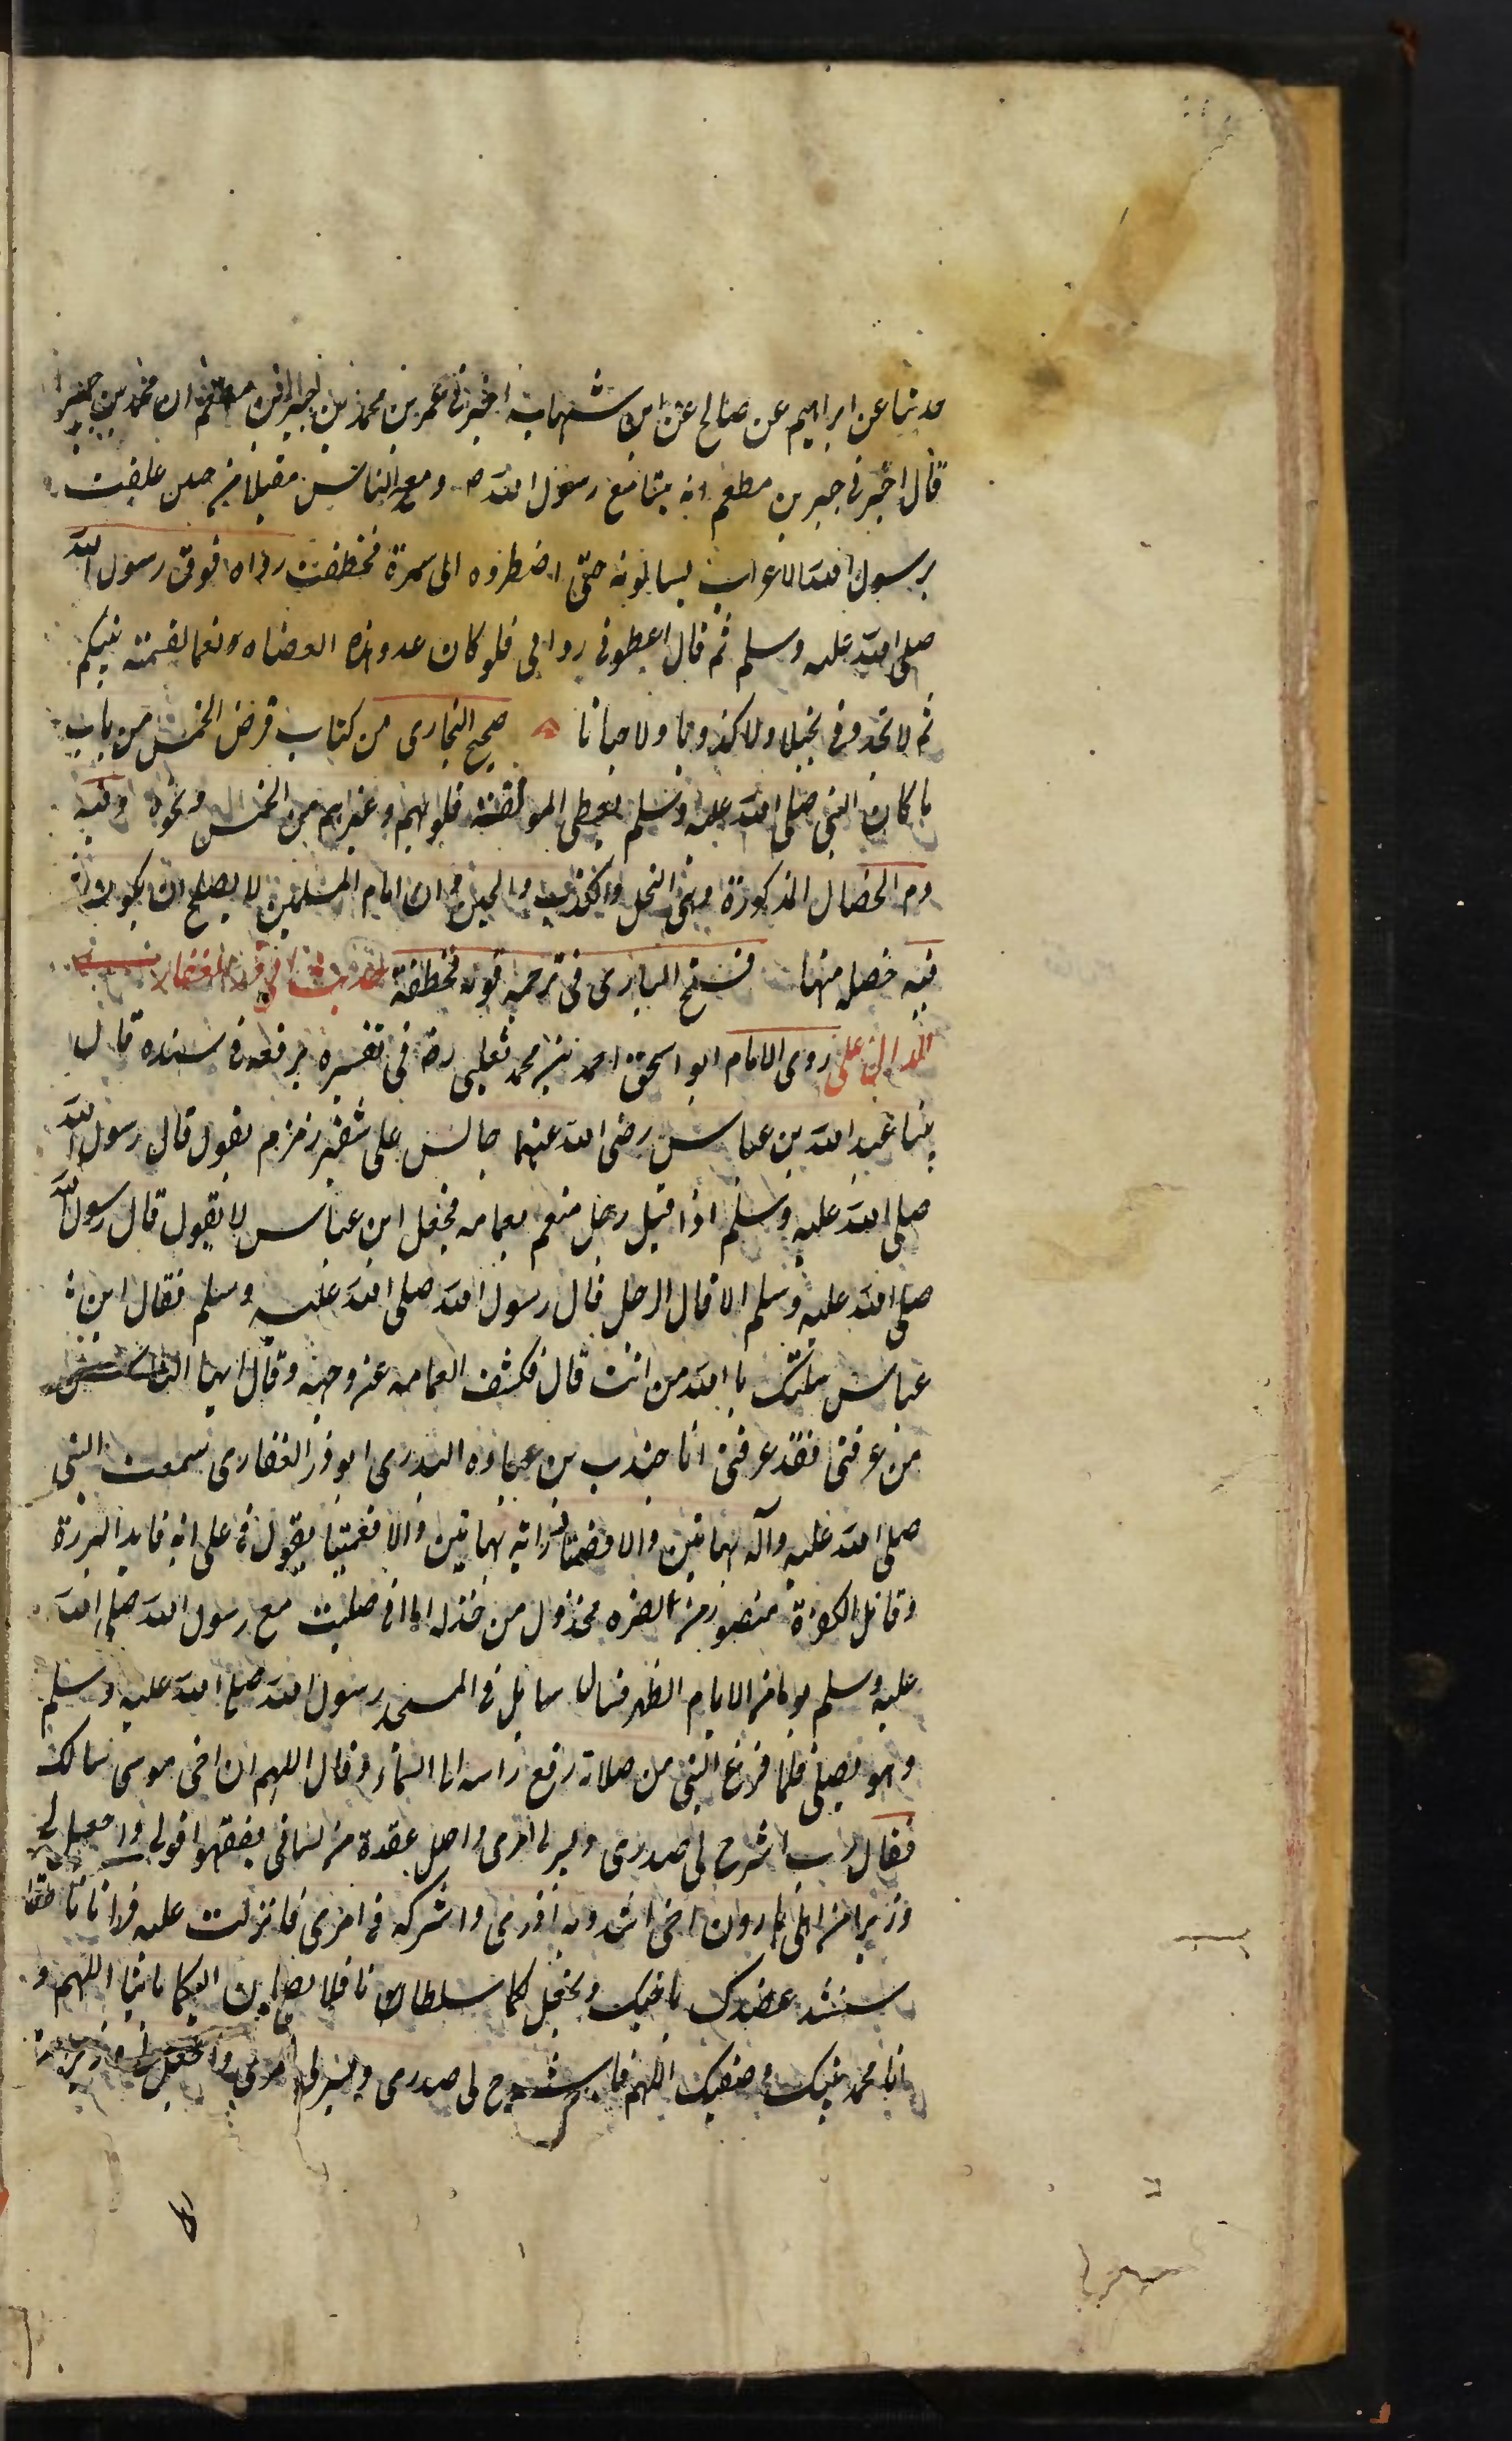 حدثنا عن ابراهيم عن صالح عن ابن شهاب اخبرنى عمر بن محمد بن جبير بن مطعم ان محمد بن جبير
قال اخبرنى جبير بن مطعم انه بينا مع رسول الله ص ومعه الناس مقبلا من حنين علقت
برسول الله الاعراب يسالونه حتى اضطروه الى سمرة فخطفت رداه فوقف رسول الله
صلى الله عليه وسلم ثم قال اعطونى ردائى فلو كان عدد هذه العضاه نعما لقسمته بينكم
ثم لا تجدونى بخيلا ولا كذوبا ولا جبانا صحيح البخارى من كتاب فرض الخمس من باب
ما كان النبى صلى الله عليه وسلم يعطى المولفة قلوبهم وغيرهم من الخمس ونحوه وفيه
ذم الخصال المذكورة وهى البخل والكذب والجبن وان امام المسلمين لا يصلح ان يكون
فيه خصلة منها فتح البارى فى ترجمه قوله فخطفة
روى الامام ابو اسحق احمد بن محمد ثعلبى رضه فى تفسيره يرفعه فى سنده قال
بينا عبد الله بن عباس رضى الله عنهما جالس على شفير زمزم يقول قال رسول الله
صلى الله عليه وسلم اذ اقبل رجل متعم بعمامه فجعل ابن عباس لا يقول قال رسول الله
صلى الله عليه وسلم الا قال الرجل قال رسول الله صلى الله عليه وسلم فقال ابن
عباس سالتك بالله من انت قال فكشف العمامه عن وجهه وقال ايها الناس
من عرفنى فقد عرفنى انا جندب بن عباده البدرى ابو ذر الغفارى سمعت النبى
صلى الله عليه وآله بهاتين والا فصمتا ورايته بهاتين والا فعميتا يقول فى على انه قايد البررة
وقاتل الكفرة منصور من نصره مخذول من خذله اما انى صليت مع رسول الله صلى الله
عليه وسلم يوما من الايام الظهر فسال سايل فى المسجد رسول الله صلى الله عليه وسلم
وهو يصلى فلما فرغ النبى من صلاته رفع راسه الى السماء وقال اللهم ان اخى موسى سالك
فقال رب اشرح لى صدرى ويسر لى امرى واحلل عقدة من لسانى يفقهوا قولى واجعل لى
وزيرا من اهلى هارون اخى اشدد به ازرى واشركه فى امرى فانزلت عليه قرانا ناطقا
سنشد عضدك باخيك ونجعل لكما سلطانا فلا يصلون اليكما باياتنا اللهم و
انا محمد نبيك وصفيك اللهم فاشرح لى صدرى ويسر لى امرى واجعل لى وزيرا